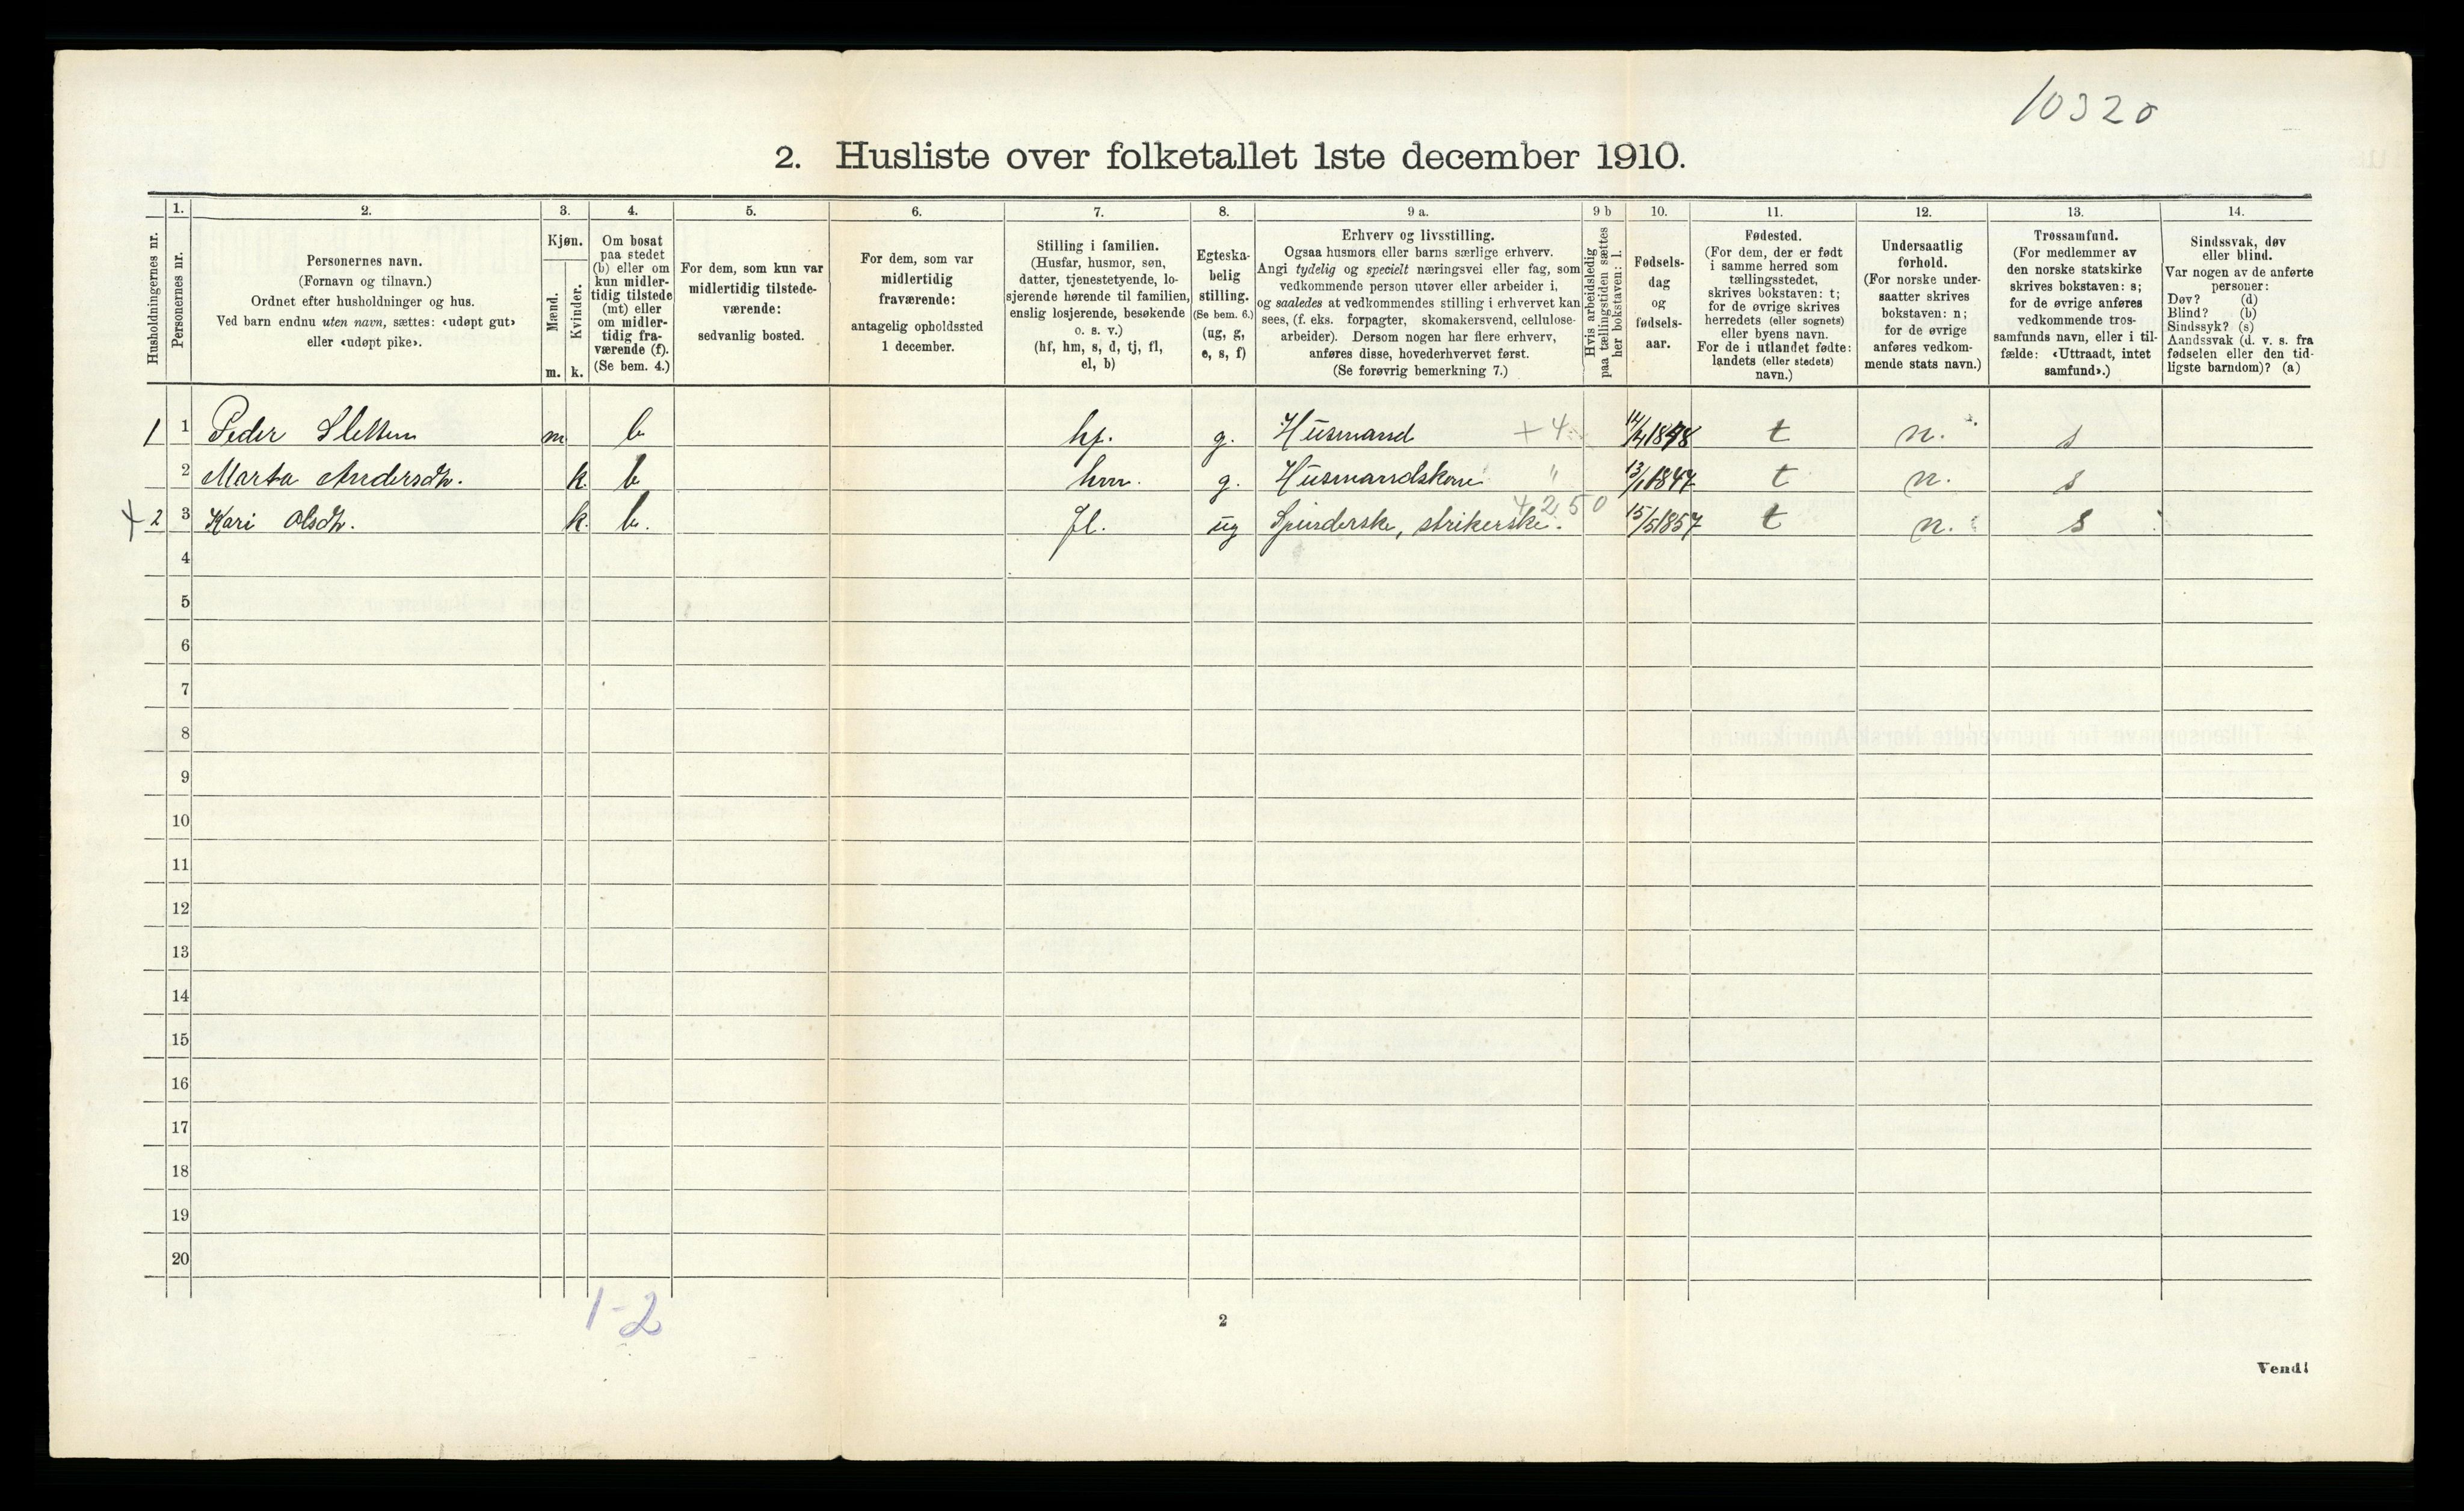 10320
2. Husliste over folketallet 1ste december 1910.
Husholdningernes nr.
1.
Personernes nr.
2.
Personernes navn.
(Fornavn og tilnavn.)
Ordnet efter husholdninger og hus.
Ved barn endnu uten navn, sættes: «udøpt gut»
eller «udøpt pike».
3.
Kjøn.
Mænd.
Kvinder.
m. k.
4.
Om bosat
paa stedet
(b) eller om
kun midler-
tidig tilstede
(mt) eller
om midler-
tidig fra-
værende (f).
(Se bem. 4.)
5.
For dem, som kun var
midlertidig tilstede-
værende:
sedvanlig bosted.
6.
For dem, som var
midlertidig
fraværende:
antagelig opholdssted
1 december.
7.
Stilling i familien.
(Husfar, husmor, søn,
datter, tjenestetyende, lo-
sjerende hørende til familien,
enslig losjerende, besøkende
o. s. v.)
(hf, hm, s, d, tj, fl,
el, b)
8.
Egteska-
belig
stilling.
(Se bem. 6.)
(ug, g,
e, s, f)
9 a.
Erhverv og livsstilling.
Ogsaa husmors eller barns særlige erhverv.
Angi tydelig og specielt næringsvei eller fag, som
vedkommende person utøver eller arbeider i,
og saaledes at vedkommendes stilling i erhvervet kan
sees, (f. eks. forpagter, skomakersvend, cellulose-
arbeider). Dersom nogen har flere erhverv,
anføres disse, hovederhvervet først.
(Se forøvrig bemerkning 7.)
9 b
Hvis arbeidsledig
paa tællingstiden sættes
her bokstaven: l.
10.
Fødsels-
dag
og
fødsels-
aar.
11.
Fødested.
(For dem, der er født
i samme herred som
tællingsstedet,
skrives bokstaven: t;
for de øvrige skrives
herredets (eller sognets)
eller byens navn.
For de i utlandet fødte:
landets (eller stedets)
navn.)
12.
Undersaatlig
forhold.
(For norske under-
saatter skrives
bokstaven: n;
for de øvrige
anføres vedkom-
mende stats navn.)
13.
Trossamfund.
(For medlemmer av
den norske statskirke
skrives bokstaven: s;
for de øvrige anføres
vedkommende tros-
samfunds navn, eller i til-
fælde: «Uttraadt, intet
samfund».)
14.
Sindssvak, døv
eller blind.
Var nogen av de anførte
personer:
Døv? (d)
Blind? (b)
Sindssyk? (s)
Aandssvak (d. v. s. fra
fødselen eller den tid-
ligste barndom)? (a)
1 1 Peder Sletten m b hf. g. Husmand + 4 1848 t n. s
2 Marta Andersdtr. k. b hm. g. Husmandskone " 13/1 1847 t n. s
+ 2 3 Kari Olsdtr. k. b. fl. ug Spinderske, strikerske. 4250 15/5 1857 t n. s
4
5
6
7
8
9
10
11
12
13
14
15
16
17
18
19
20
1-2
2
Vend!